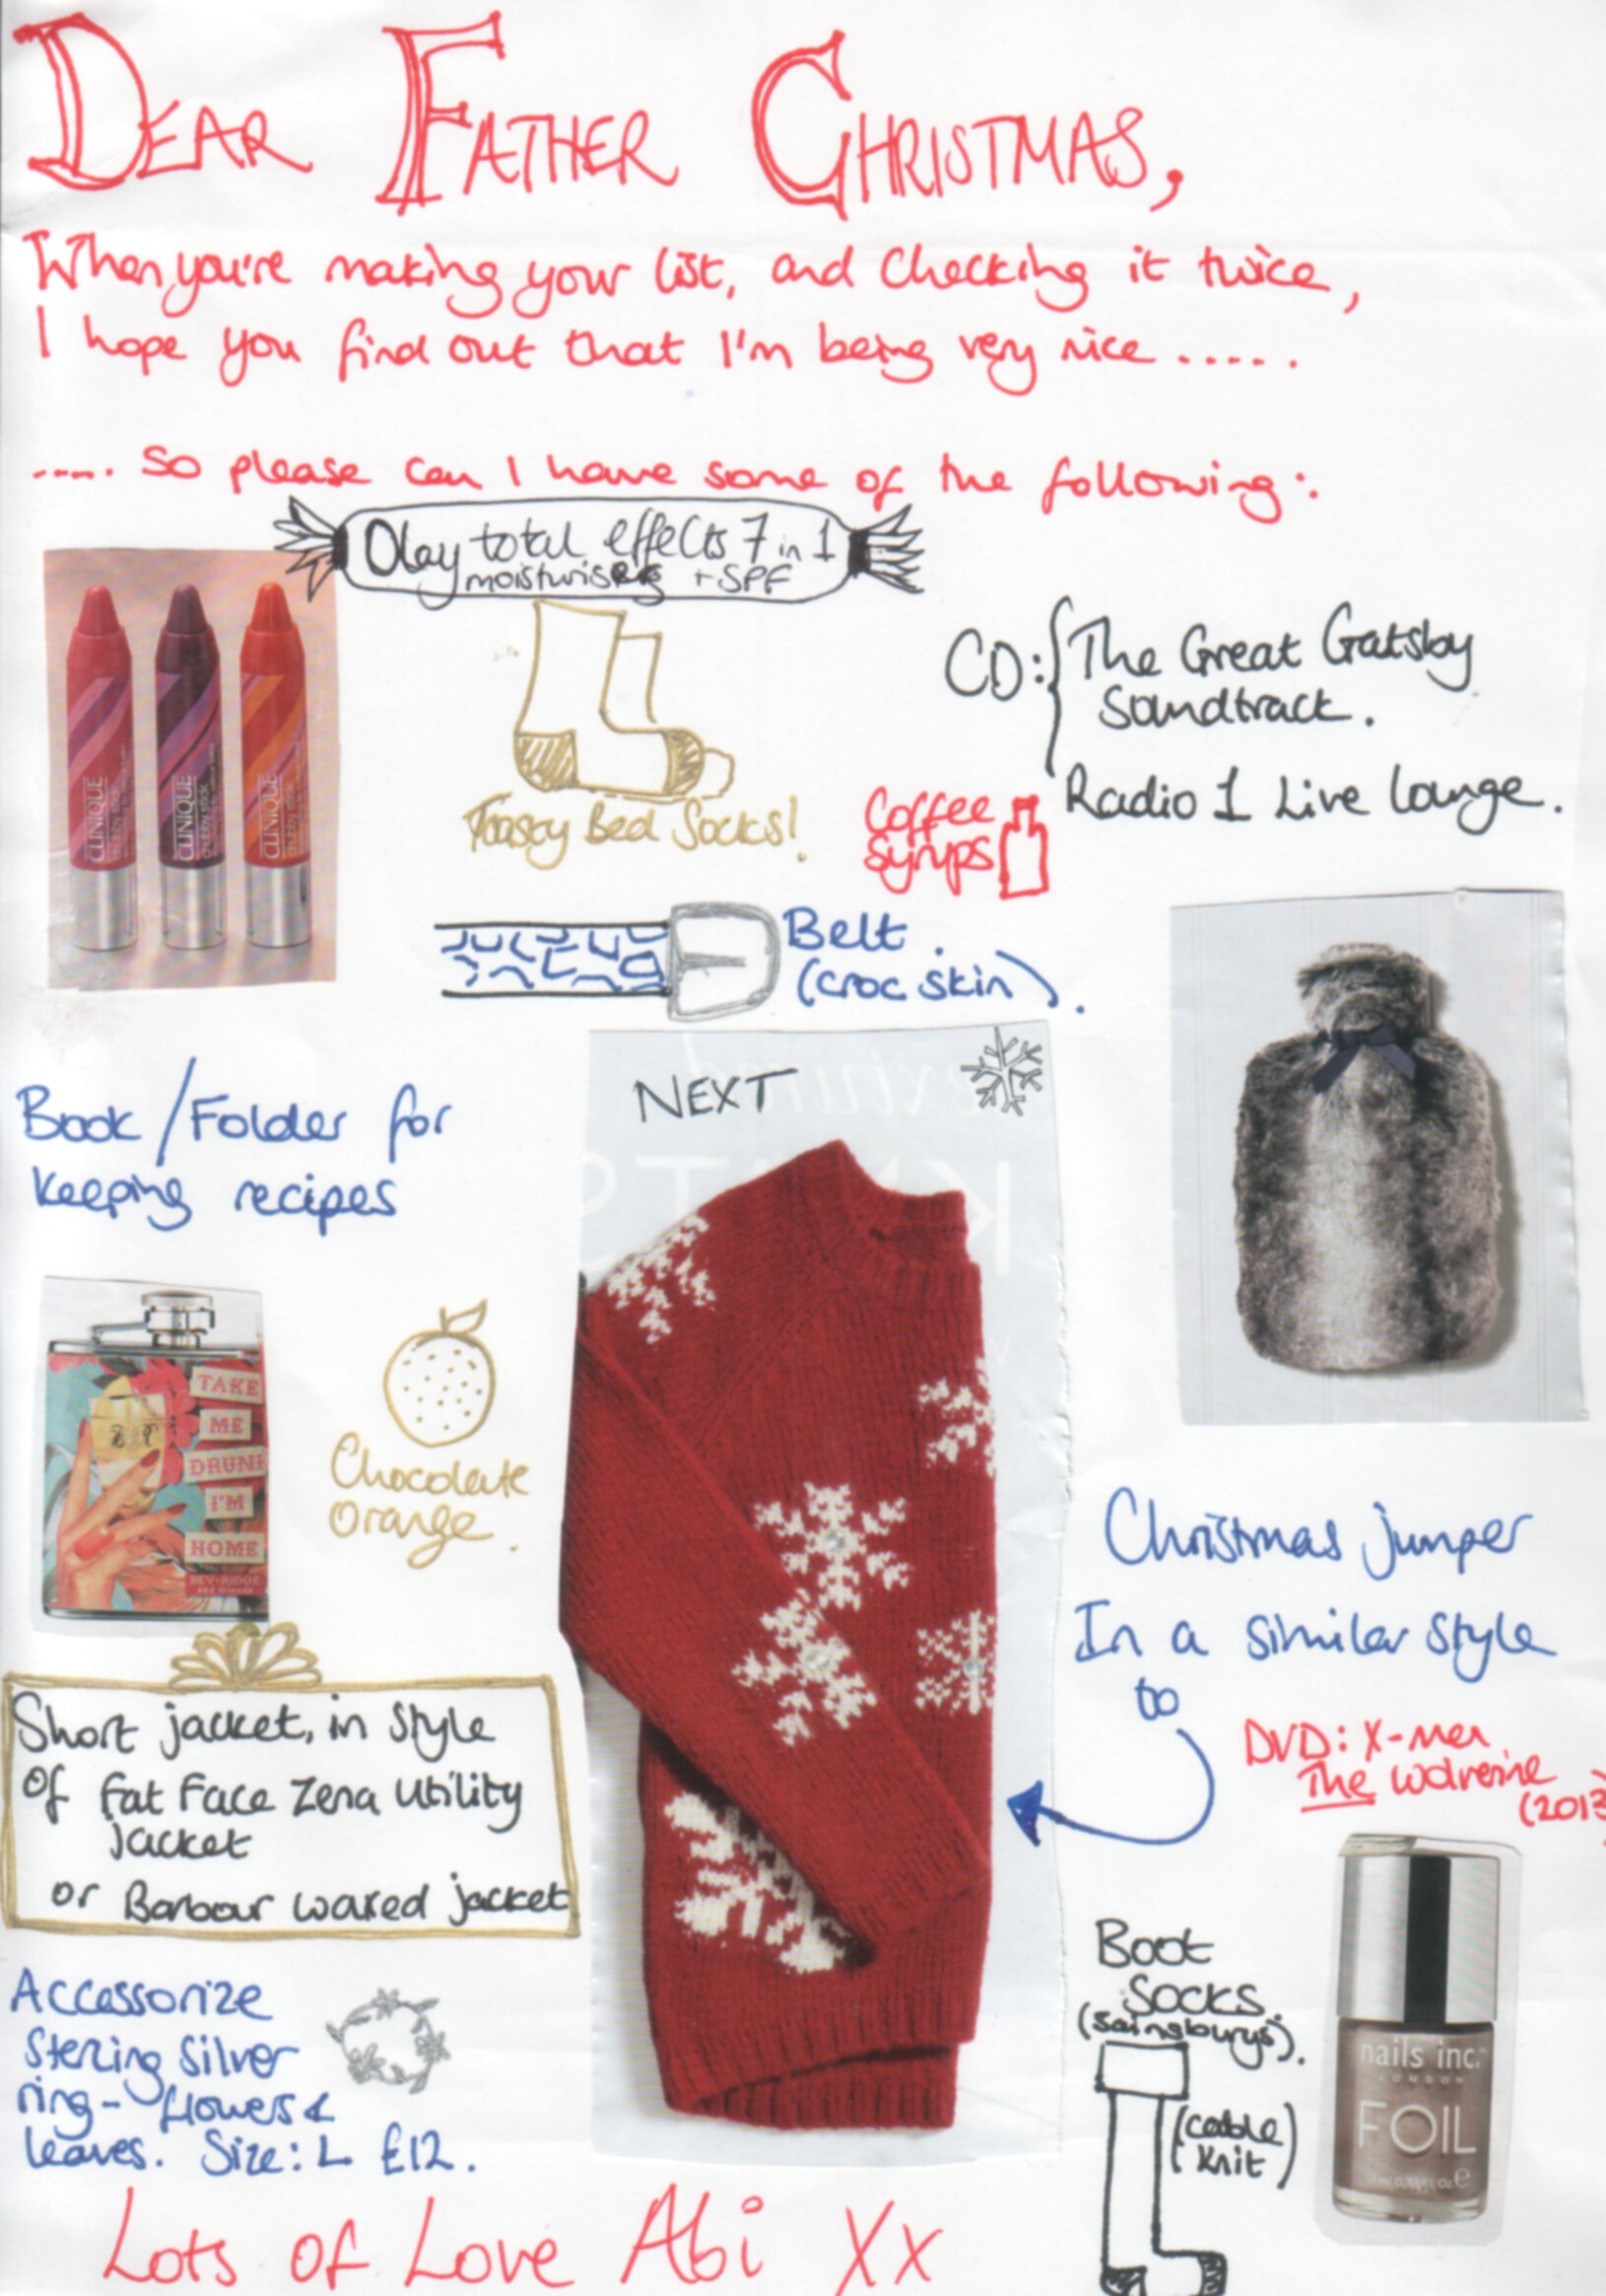 DEAR FATHER CHRISTMAS,
When you're making your list, and checking it twice,
I hope you find out that I'm being very nice .....
..... So please can I have some of the following:
Olay total effects 7 in 1
moisturiser + SPF
CLINIQUE
chubby stick
CLINIQUE
chubby stick
CLINIQUE
chubby stick
Toasty Bed Socks!
CD: The Great Gatsby
Soundtrack.
Radio 1 Live Lounge.
Coffee
Syrups
Belt.
(croc skin).
Book/Folder for
keeping recipes
NEXT
TAKE
ME
DRUNK
I'M
HOME
BEV•RIDGE
and friends
Chocolate
Orange.
Christmas jumper
In a similar style
to
Short jacket, in style
of Fat Face Zena Utility
Jacket
or Barbour waxed jacket
DVD: X-Men
The Wolverine
(2013
Accessorize
Sterling Silver
ring- flowers &
leaves. Size: L £12.
Boot
Socks.
(Sainsburys).
(cable
knit)
nails inc.
LONDON
FOIL
Lots of Love Abi Xx